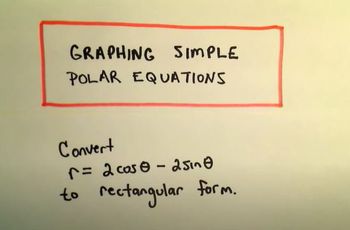 GRAPHING SIMPLE
POLAR EQUATIONS
Convert
r = 2 cos θ - 2 sin θ
to rectangular form.